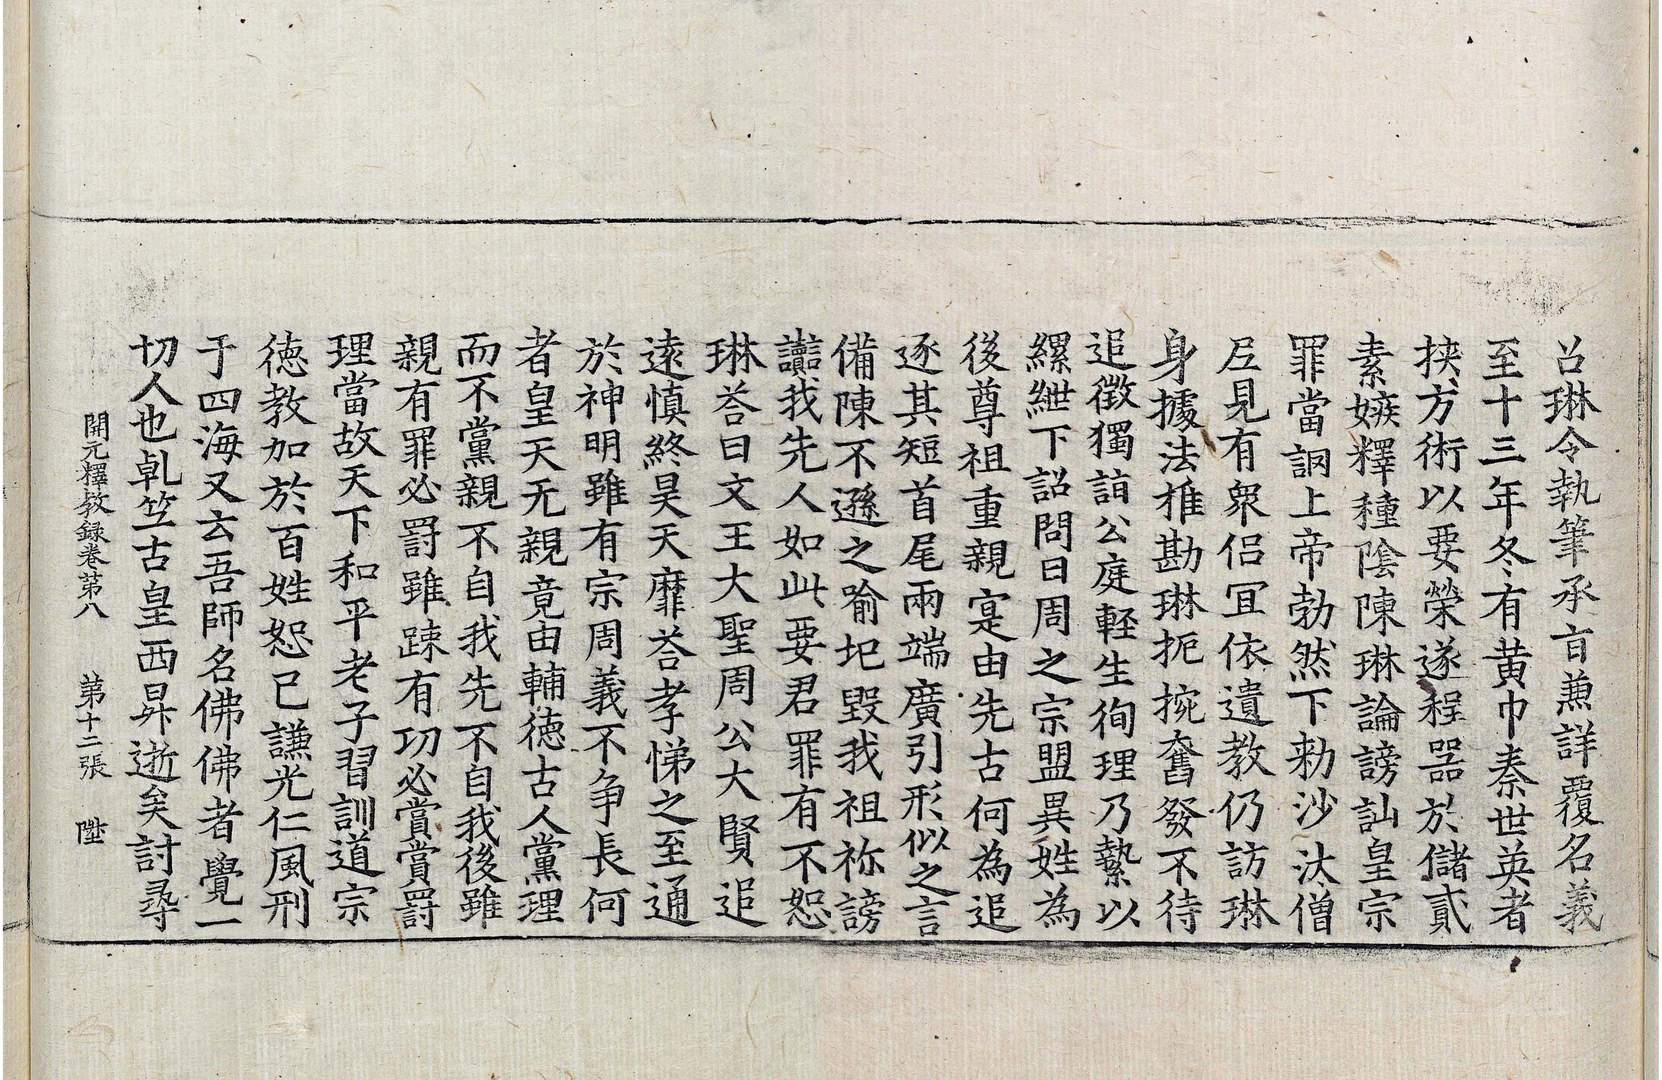 召琳令執筆承旨兼詳覆名義
至十三年冬有黃巾秦世英者
挾方術以要榮遂程器於儲貳
素嫉釋種陰陳琳論謗訕皇宗
罪當訕上帝勃然下勅沙汰僧
尼見有眾侶冝依遺教仍訪琳
身據法推勘琳扼捥奮發不待
追徵獨詣公庭輕生徇理乃縶以
縲紲下詔問曰周之宗盟異姓為
後尊祖重親寔由先古何為追
逐其短首尾兩端廣引形似之言
備陳不遜之喻圯毀我祖祢謗
讟我先人如此要君罪有不恕
琳荅曰文王大聖周公大賢追
遠慎終昊天靡荅孝悌之至通
於神明雖有宗周義不争長何
者皇天无親竟由輔徳古人黨理
而不黨親不自我先不自我後雖
親有罪必罸雖踈有功必賞賞罸
理當故天下和平老子習訓道宗
徳教加於百姓恕己謙光仁風刑
于四海又云吾師名佛佛者覺一
切人也乹竺古皇西昇逝矣討尋
開元釋教録卷第八 第十二張 陞